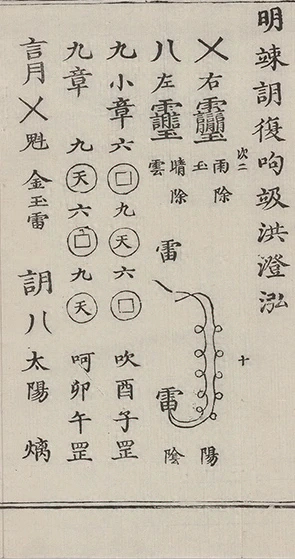 明竦詷復呴竐洪澄泓
次二　十
乂右　雨除　玉　陽
八左　晴除　雲　雷　雷　陰
九小章六囗九天六囗　吹酉子罡
九章　九天六囗九天　呵卯午罡
言月乂魁　金玉雷　詷八太陽　熵